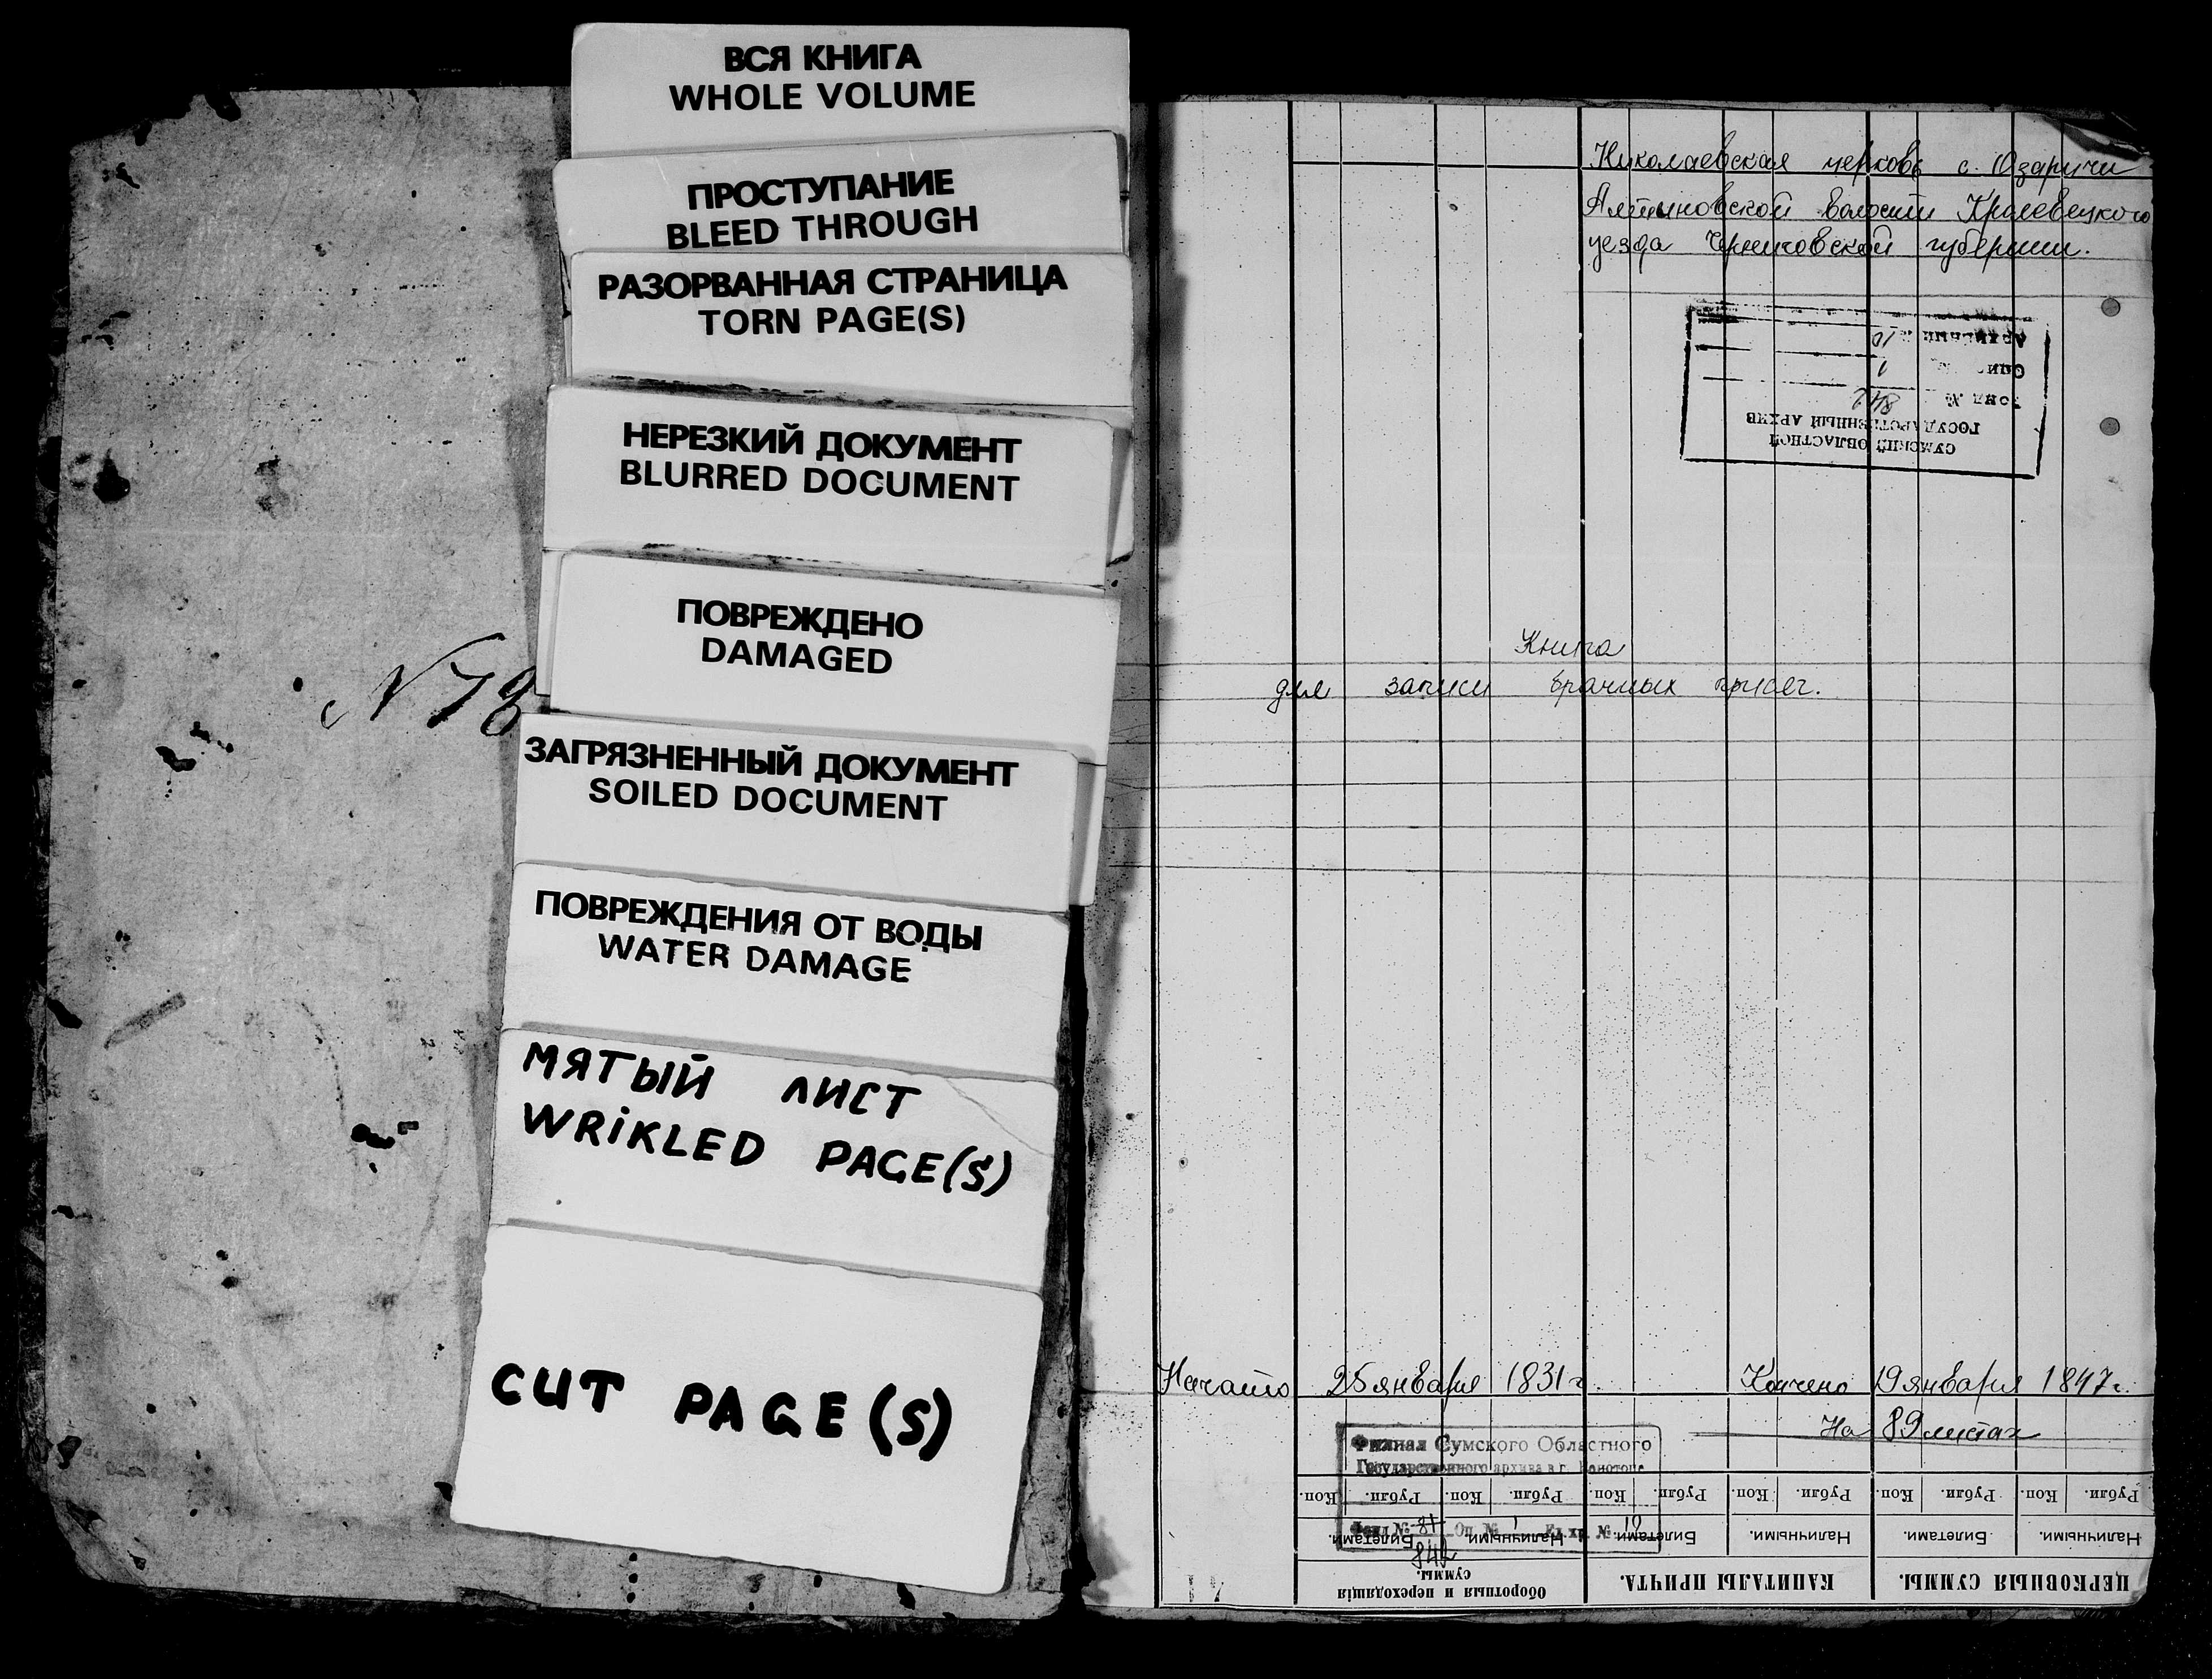 ВСЯ КНИГА
WHOLE VOLUME
ПРОСТУПАНИЕ
BLEED THROUGH
РАЗОРВАННАЯ СТРАНИЦА
TORN PAGE(S)
НЕРЕЗКИЙ ДОКУМЕНТ
BLURRED DOCUMENT
ПОВРЕЖДЕНО
DAMAGED
ЗАГРЯЗНЕННЫЙ ДОКУМЕНТ
SOILED DOCUMENT
ПОВРЕЖДЕНИЯ ОТ ВОДЫ
WATER DAMAGE
МЯТЫЙ ЛИСТ
WRIKLED PAGE(S)
CUT PAGE(S)
Николаевская церковь с. Озаричи
Алтыновской волости Кролевецкого
уезда Черниговской губернии.
СУМСКИЙ ОБЛАСТНОЙ
ГОСУДАРСТВЕННЫЙ АРХИВ
Фонд № 842
Опись № 1
10
Книга
для записи брачных присяг.
Начато 25 января 1831 г. Кончено 19 января 1847 г.
На 89 листах
Филиал Сумского Областного
Государственного архива в г. Конотопе
Фонд № 81 Оп. № 1 Ед. хр. № 10
842
ЦЕРКОВНЫЯ СУММЫ. КАПИТАЛЫ ПРИЧТА. Оборотныя и переходящія суммы.
Наличными. Билетами. Наличными. Билетами. Наличными. Билетами.
Рубли. Коп. Рубли. Коп. Рубли. Коп. Рубли. Коп. Рубли. Коп. Рубли. Коп.